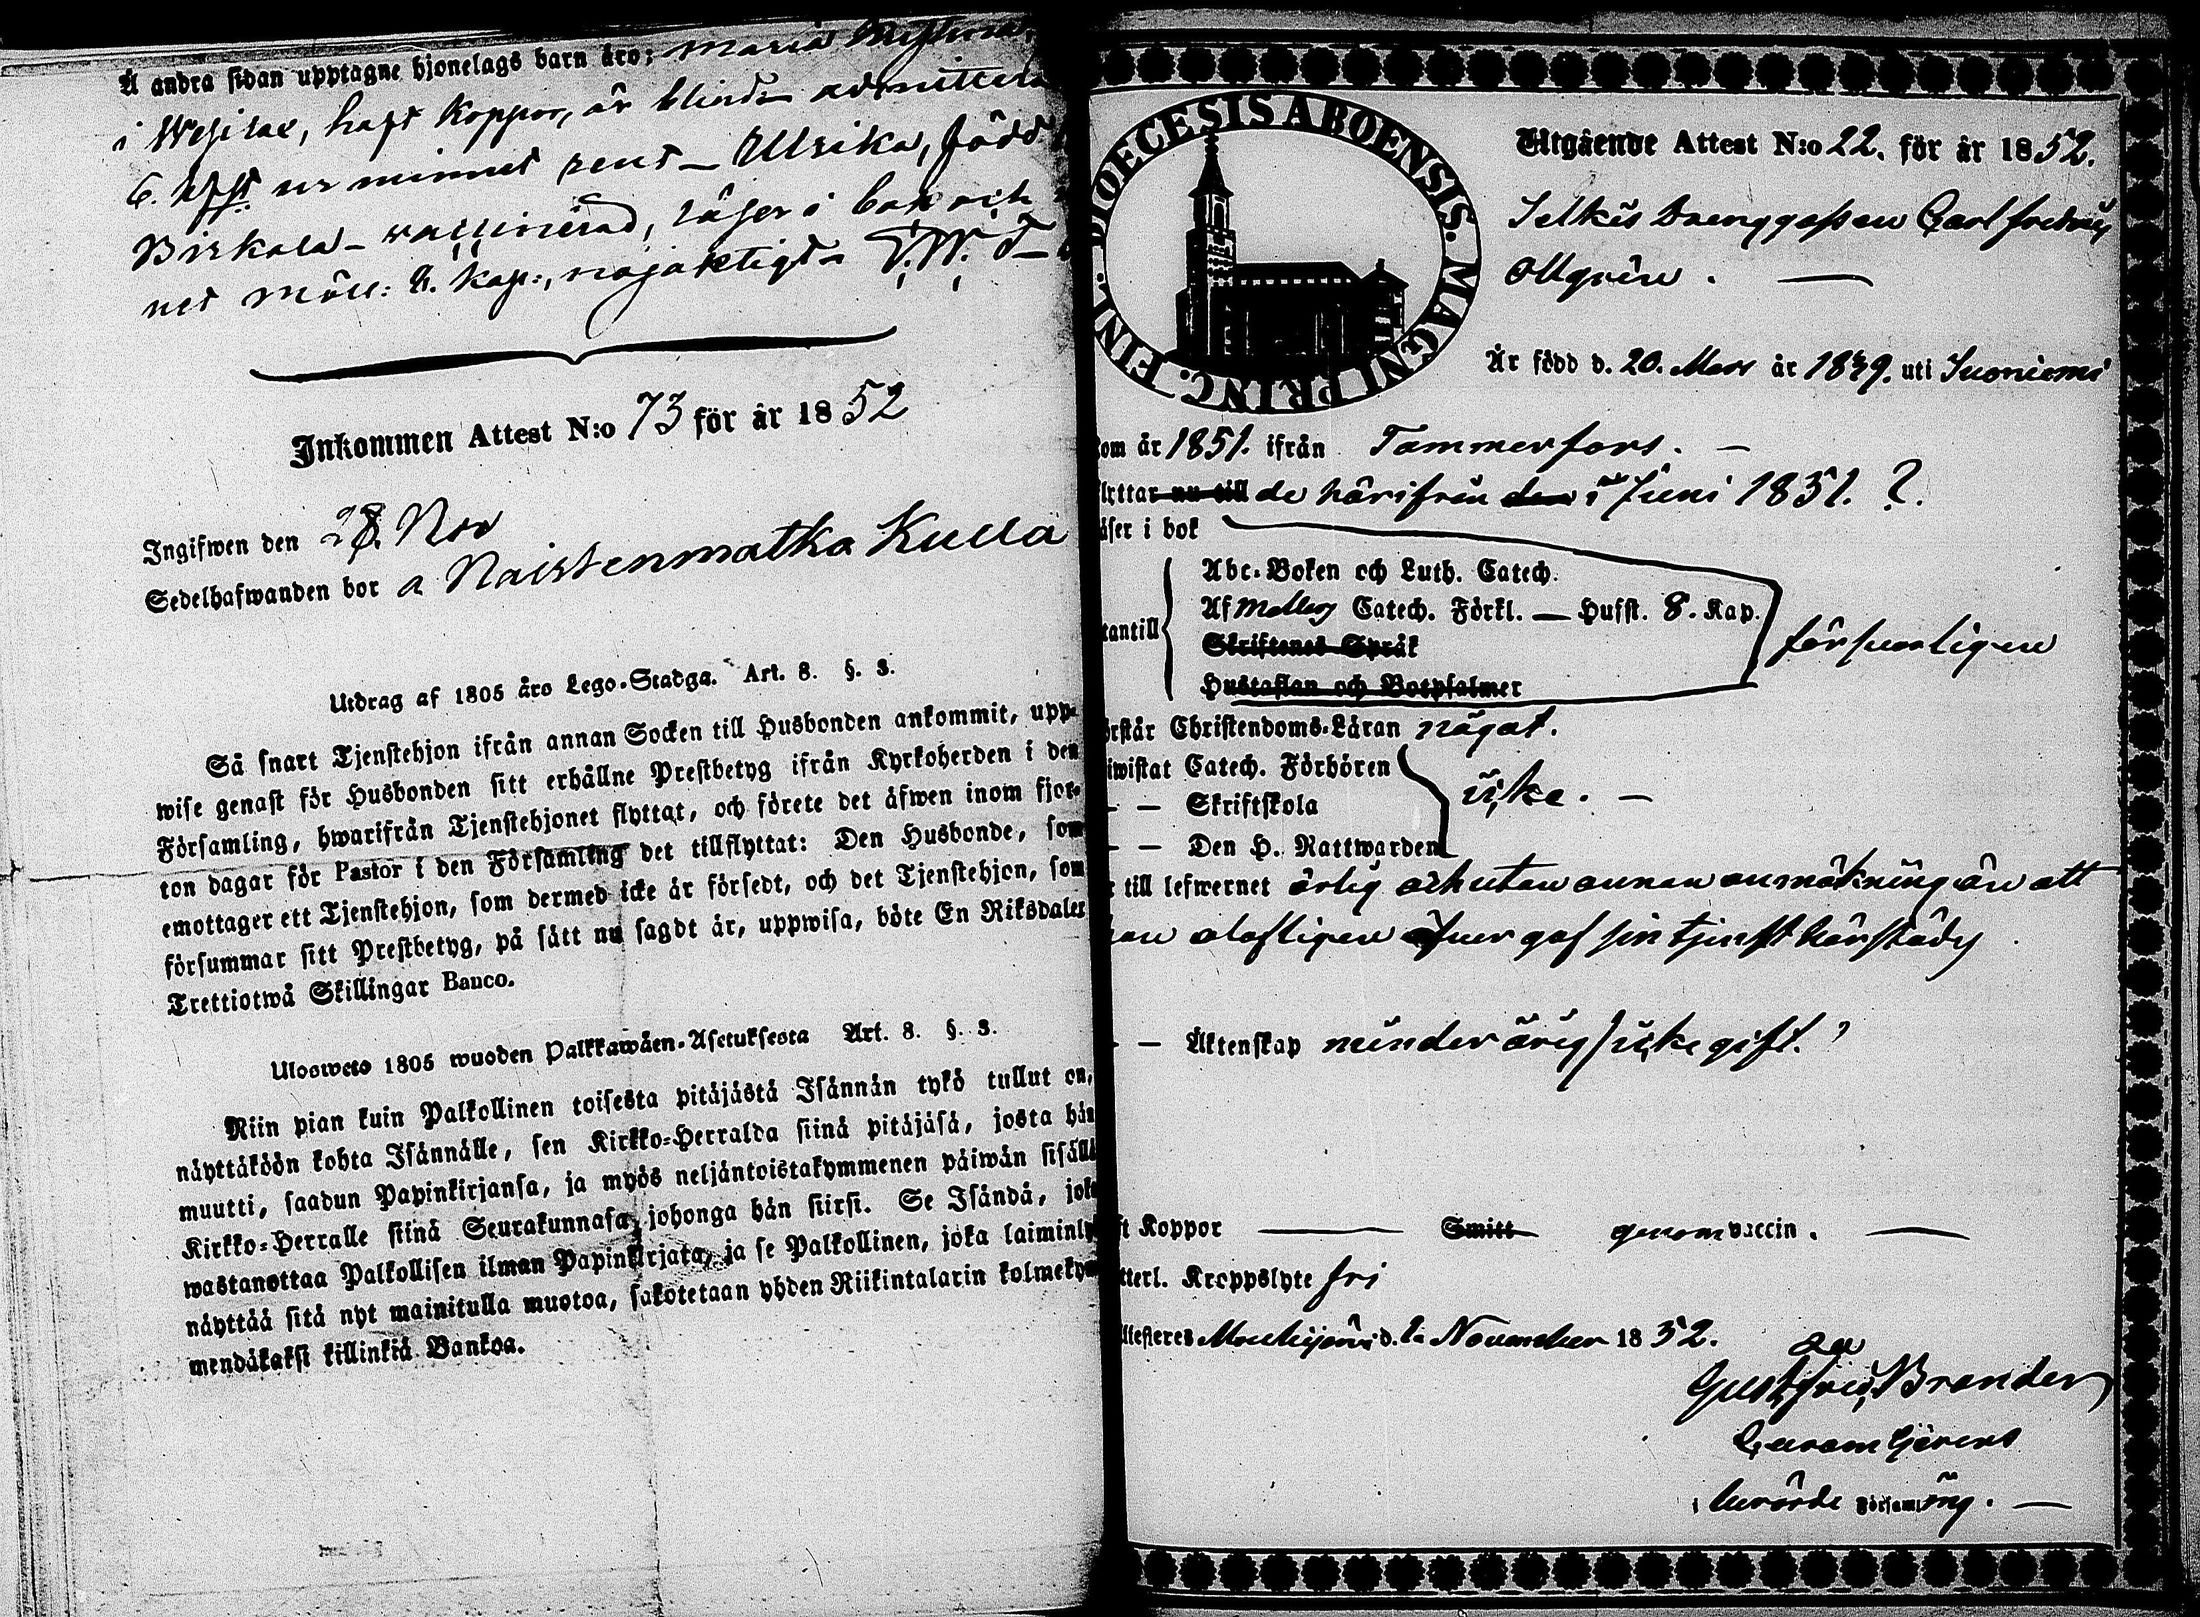 Å andra sidan upptagne hjonelags barn äro: Maria
i Wesilax, haft Koppor, är blind
6. H:fst ur minnet rent – Ulrika, född
Birkala – vaccinerad, läser i bok och
net Möll: 8. kap:, nöjaktigt – T. W. T –
Inkommen Attest N:o 73 för år 1852
Ingifwen den 28. Nov
Sedelhafwanden bor å Naistenmatka Kulla
Utdrag af 1805 års Lego-Stadga. Art. 8. §. 3.
Så snart Tjenstehjon ifrån annan Socken till Husbonden ankommit, upp-
wise genast för Husbonden sitt erhållne Prestbetyg ifrån Kyrkoherden i den
Församling, hwarifrån Tjenstehjonet flyttat, och förete det äfwen inom fjor-
ton dagar för Pastor i den Församling det tillflyttat: Den Husbonde, som
emottager ett Tjenstehjon, som dermed icke är försedt, och det Tjenstehjon, som
försummar sitt Prestbetyg, på sätt nu sagdt är, uppwisa, böte En Riksdaler
Trettiotwå Skillingar Banco.
Ulosweto 1805 wuoden Palkkawäen-Asetuksesta Art. 8. §. 3.
Niin pian kuin Palkollinen toisesta pitäjästä Isännän tykö tullut on,
näyttäköön kohta Isännälle, sen Kirkko-Herralda siinä pitäjäsä, josta hän
muutti, saadun Papinkirjansa, ja myös neljäntoistakymmenen päiwän sisällä
Kirkko-Herralle siinä Seurakunnasa, johonga hän siirsi. Se Isändä, joka
wastanottaa Palkollisen ilman Papinkirjata, ja se Palkollinen, joka laiminly
näyttää sitä nyt mainitulla muotoa, sakotetaan yhden Riikintalarin kolmeky
mendäkaksi killinkiä Bankoa.
DIOECESIS ABOENSIS. MAGNI PRINC. FINL.
Utgående Attest N:o 22. för år 1852.
Selkis Drenggossen Carl Fredric
Ollgrén. —
Är född d. 20. Mars år 1839. uti Suoniemi
om år 1851. ifrån Tammerfors. –
lyttar nu till de härifrån den i Juni 1851. ?.
äser i bok
tantill
Abc-Boken och Luth. Catech.
Af Möllers Catech. Förkl. — Hufst. 8. Kap.
Skriftenes Språk
Hustaflan och Botpsalmer
försvarligen
rstår Christendoms-Läran något.
iwistat Catech. Förhören
– – Skriftskola
– – Den H. Nattwarden
icke. –
till lefwernet ärlig och utan annan anmärkning än att
han olofligen öfvergaf sin tjenst härstädes
– – Äktenskap minderårig / icke gift. ?
ft Koppor — Smitt genom vaccin. —
tterl. Kroppslyte fri
llesteres Mouhijärvi d. 2. November 1852.
Gust. Fried. Brander
i berörde Församling. —